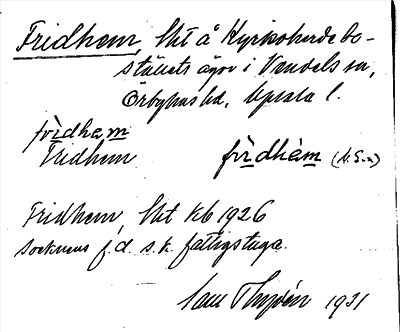 Fridhem, lht å Kyrkoherdebo-
ställets ägor i Vendels sn,
Örbyhus hd, Upsala l.
fri̇dhem
Fridhem fri̇dhèm (N.S-n)
Fridhem, lht Kb 1926
Socknens f.d. s.k. fattigstuga.
1931